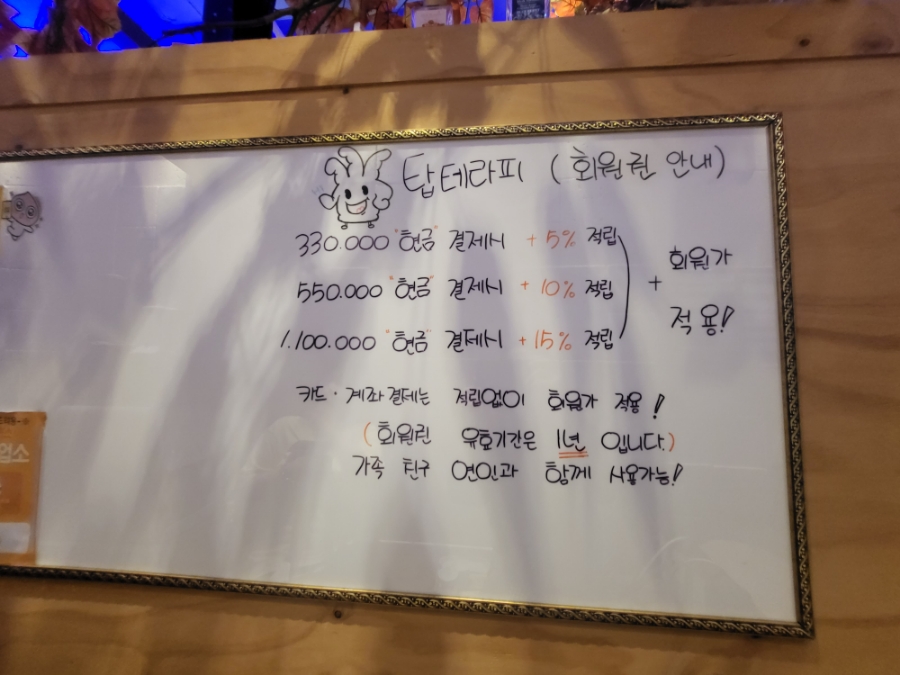 탑테라피 (회원권 안내)
330.000 "현금" 결제시 + 5% 적립
550.000 "현금" 결제시 + 10% 적립
1.100.000 "현금" 결제시 + 15% 적립
+ 회원가
적용!
카드 · 계좌결제는 적립없이 회원가 적용!
(회원권 유효기간은 1년 입니다.)
가족 친구 연인과 함께 사용가능!
업소